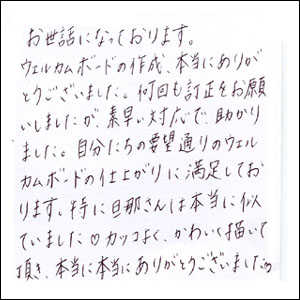 お世話になっております。
ウェルカムボードの作成、本当にありが
とうございました。何回も訂正をお願
いしましたが、素早い対応で助かり
ました。自分たちの要望通りのウェル
カムボードの仕上がりに満足してお
ります。特に旦那さんは本当に似
ていました♡カッコよく、かわいく描いて
頂き、本当に本当にありがとうございました♡